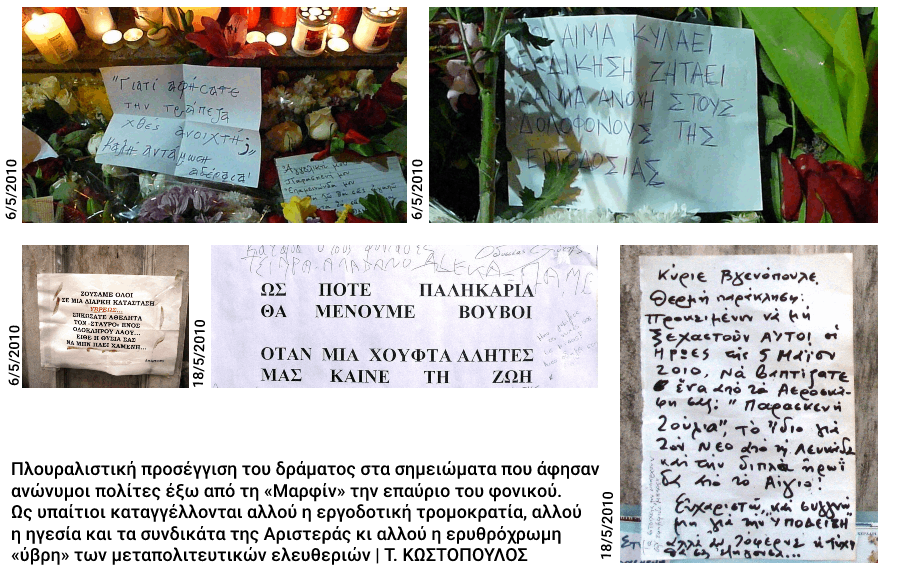 6/5/2010
"Γιατί αφήσατε
την τράπεζα
χθές ανοιχτή;"
Καλή αντάμωση
αδέρφια!
Παρασκευή μου
6/5/2010
ΤΟ ΑΙΜΑ ΚΥΛΑΕΙ
ΕΚΔΙΚΗΣΗ ΖΗΤΑΕΙ
ΚΑΜΙΑ ΑΝΟΧΗ ΣΤΟΥΣ
ΔΟΛΟΦΟΝΟΥΣ ΤΗΣ
ΕΡΓΟΔΟΣΙΑΣ
6/5/2010
ΖΟΥΣΑΜΕ ΟΛΟΙ
ΣΕ ΜΙΑ ΔΙΑΡΚΗ ΚΑΤΑΣΤΑΣΗ
ΥΒΡΕΩΣ...
ΣΗΚΩΣΑΤΕ ΑΘΕΛΗΤΑ
ΤΟΝ «ΣΤΑΥΡΟ» ΕΝΟΣ
ΟΛΟΚΛΗΡΟΥ ΛΑΟΥ...
ΕΙΘΕ Η ΘΥΣΙΑ ΣΑΣ
ΝΑ ΜΗΝ ΠΑΕΙ ΧΑΜΕΝΗ...
18/5/2010
ΤΣΙΠΡΑ-ΑΛΑΒΑΝΟ ΑΛΕΚΑ-ΠΑΜΕ
ΩΣ ΠΟΤΕ ΠΑΛΗΚΑΡΙΑ
ΘΑ ΜΕΝΟΥΜΕ ΒΟΥΒΟΙ
ΟΤΑΝ ΜΙΑ ΧΟΥΦΤΑ ΑΛΗΤΕΣ
ΜΑΣ ΚΑΙΝΕ ΤΗ ΖΩΗ
18/5/2010
Κύριε Βγενόπουλε,
Θερμή παράκληση:
Προκειμένου να μή
ξεχαστούν ΑΥΤΟΙ οι
ΗΡΩΕΣ της 5 Μαΐου
2010, Να βαπτίσατε
ένα από τα Αεροσκά-
φη σας: "Παρασκευή
Ζούλια", το ίδιο για
τον Νέο από τη Λευκάδα
και την διπλά ηρωΐ
δα από το Αίγιο!
Ευχαριστώ, και συγγνώ
μη για την ΥΠΟΔΕΙΞΗ
Πλουραλιστική προσέγγιση του δράματος στα σημειώματα που άφησαν
ανώνυμοι πολίτες έξω από τη «Μαρφίν» την επαύριο του φονικού.
Ως υπαίτιοι καταγγέλλονται αλλού η εργοδοτική τρομοκρατία, αλλού
η ηγεσία και τα συνδικάτα της Αριστεράς κι αλλού η ερυθρόχρωμη
«ύβρη» των μεταπολιτευτικών ελευθεριών | Τ. ΚΩΣΤΟΠΟΥΛΟΣ